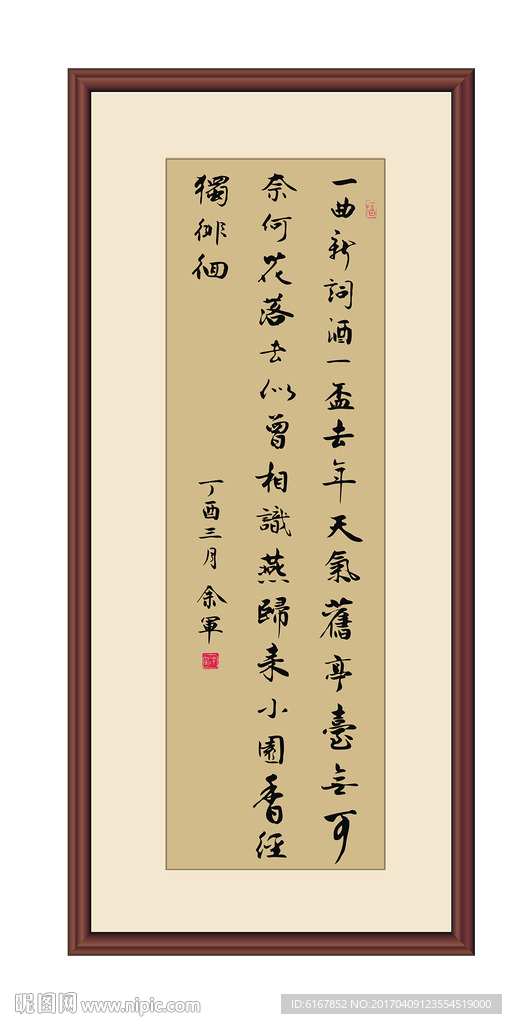 一曲新詞酒一盃去年天氣舊亭臺無可
奈何花落去似曾相識燕歸来小園香徑
獨徘徊
丁酉三月 余軍
昵图网 www.nipic.com
ID:6167852 NO:20170409123554519000